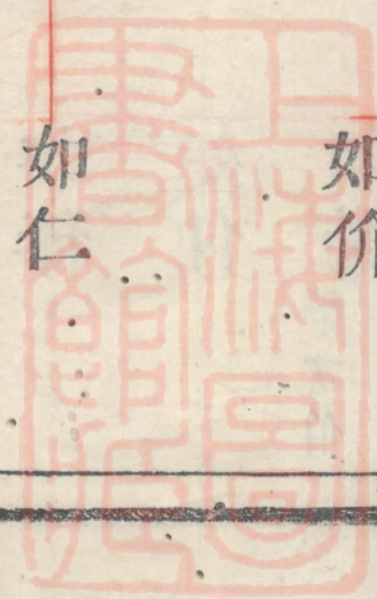 如价
如仁
上海圖書館藏